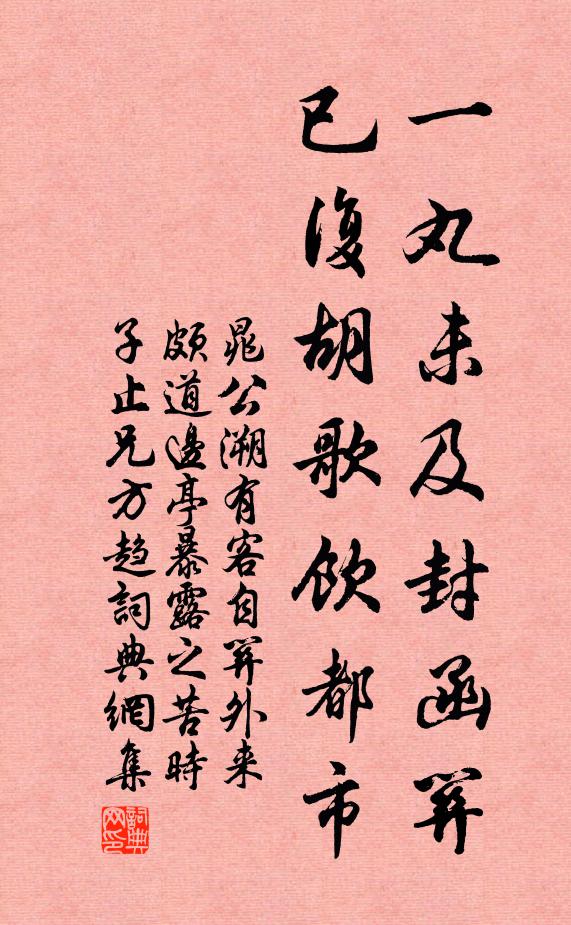 一丸未及封函關
已復胡歌飲都市
晁公溯有客自關外来
頗道邊亭暴露之苦時
子止兄方趨詞典網集
詞典网印